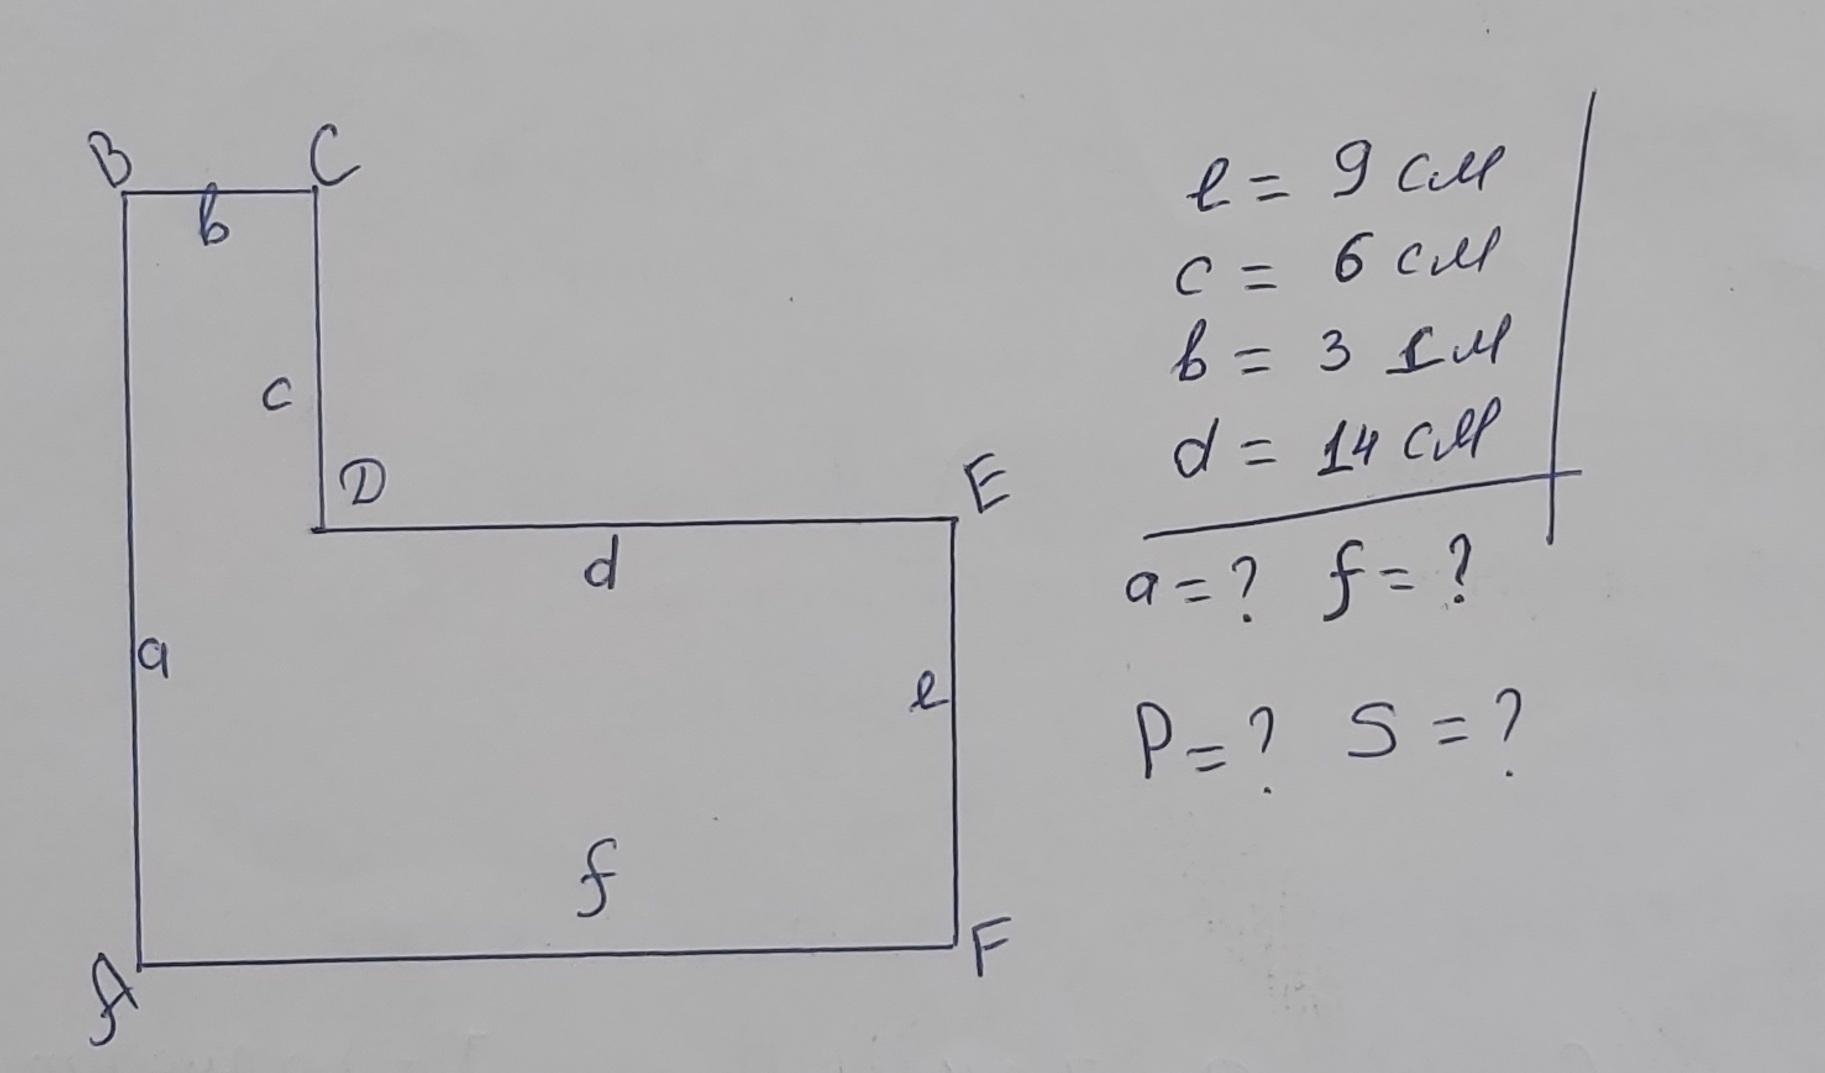 B C
b
c
D
E
d
a
e
f
A
F
e = 9 см
c = 6 см
b = 3 см
d = 14 см
a = ? f = ?
P = ? S = ?